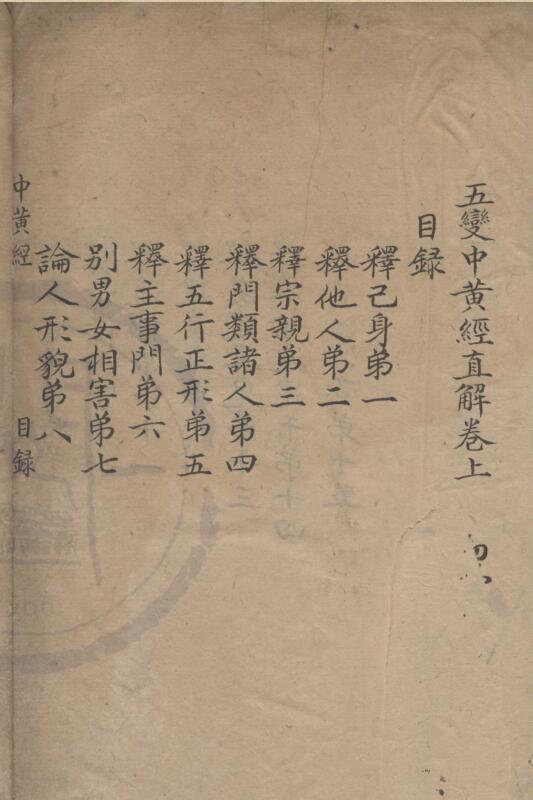 五變中黃經直解卷上
目録
釋己身弟一
釋他人弟二
釋宗親弟三
釋門類諸人弟四
釋五行正形弟五
釋主事門弟六
別男女相害弟七
論人形貌弟八
中黃經 目録